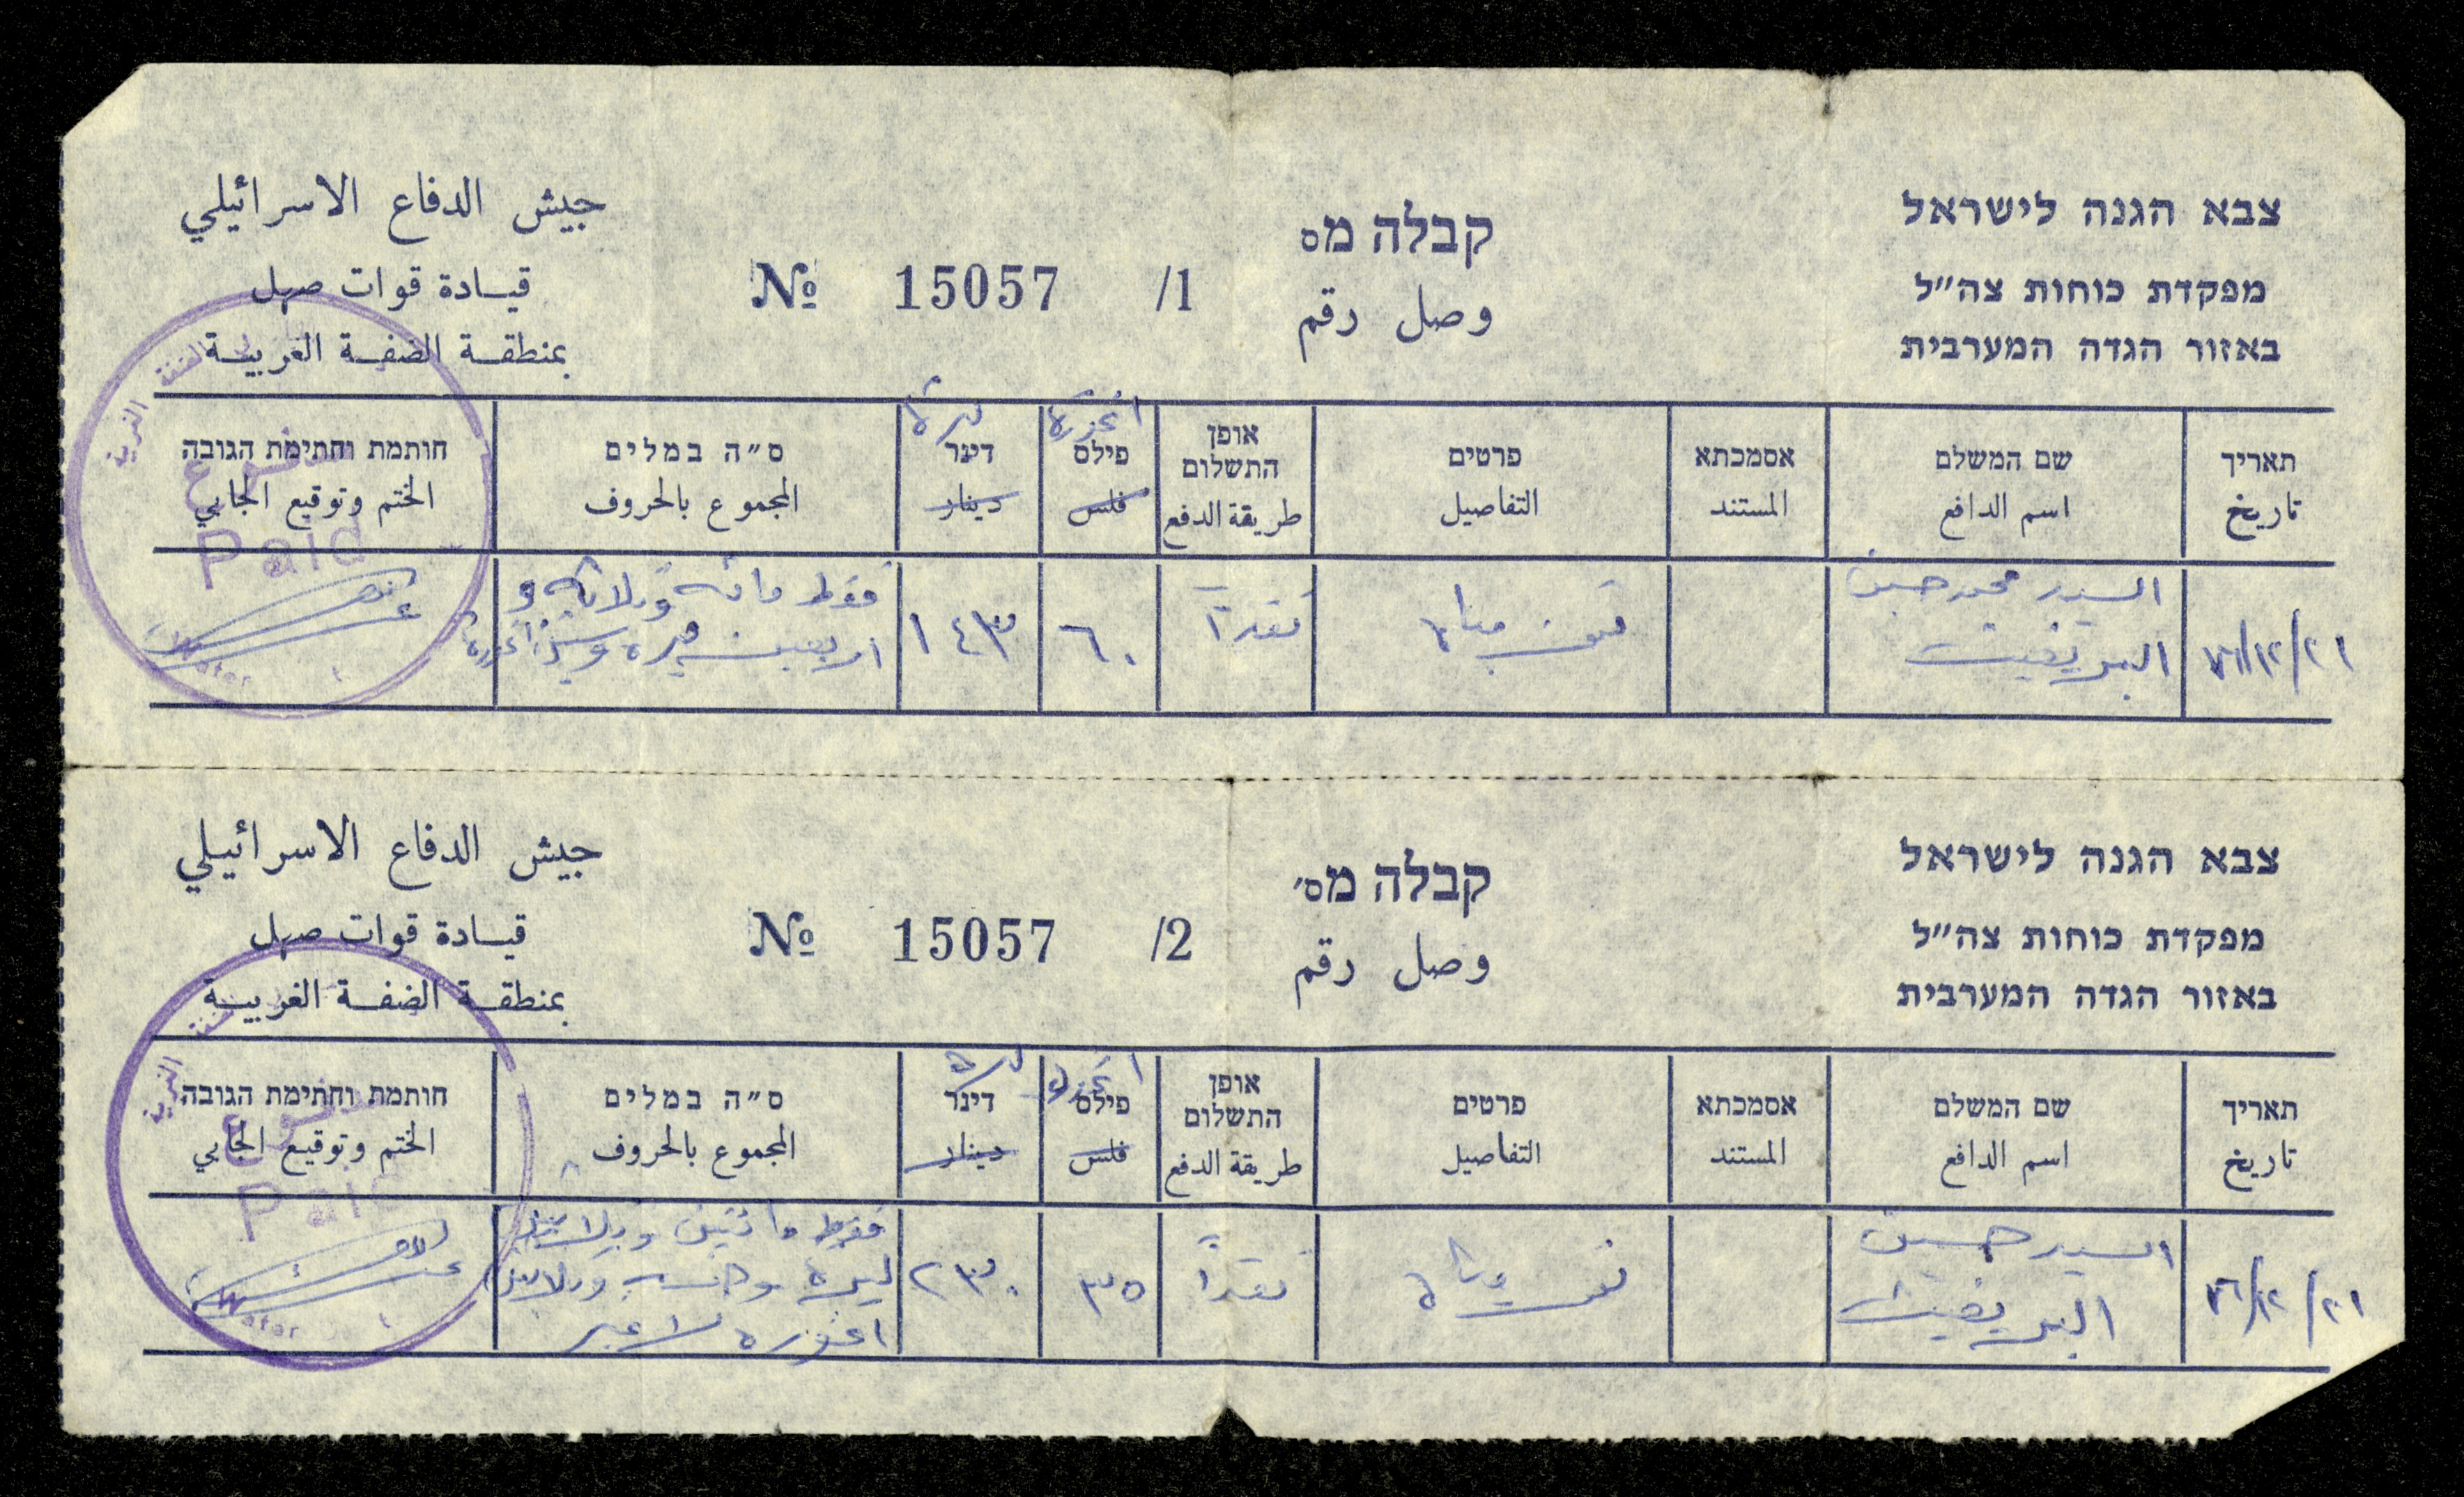 צבא הגנה לישראל
מפקדת כוחות צה״ל
באזור הגדה המערבית
קבלה מס
وصل رقم
№ 15057 /1
جيش الدفاع الاسرائيلي
قيادة قوات صهل
بمنطقة الضفة الغربية
תאריך
تاريخ
שם המשלם
اسم الدافع
אסמכתא
المستند
פרטים
التفاصيل
אופן
התשלום
طريقة الدفع
اغورة
פילס
فلس
ليرة
דינר
دينار
ס״ה במלים
المجموع بالحروف
חותמת וחתימת הגובה
الختم وتوقيع الجابي
Paid
٢١/١٢/٧٦
السيد محمد حسين
ثمن مياه
نقداً
٦٠
١٤٣
فقط مائة وثلاثة و
اربعين ليرة وستين اغورة
Water
צבא הגנה לישראל
מפקדת כוחות צה״ל
באזור הגדה המערבית
קבלה מס׳
وصل رقم
№ 15057 /2
جيش الدفاع الاسرائيلي
قيادة قوات صهل
بمنطقة الضفة الغربية
תאריך
تاريخ
שם המשלם
اسم الدافع
אסמכתא
المستند
פרטים
التفاصيل
אופן
התשלום
طريقة الدفع
اغورة
פילס
فلس
ليرة
דינר
دينار
ס״ה במלים
المجموع بالحروف
חותמת וחתימת הגובה
الختم وتوقيع الجابي
Paid
٢١/١٢/٧٦
السيد حسين
ثمن مياه
نقداً
٣٥
٢٣٠
فقط مائتين وثلاثين
ليرة وخمسة وثلاثين
اغورة لا غير
Water